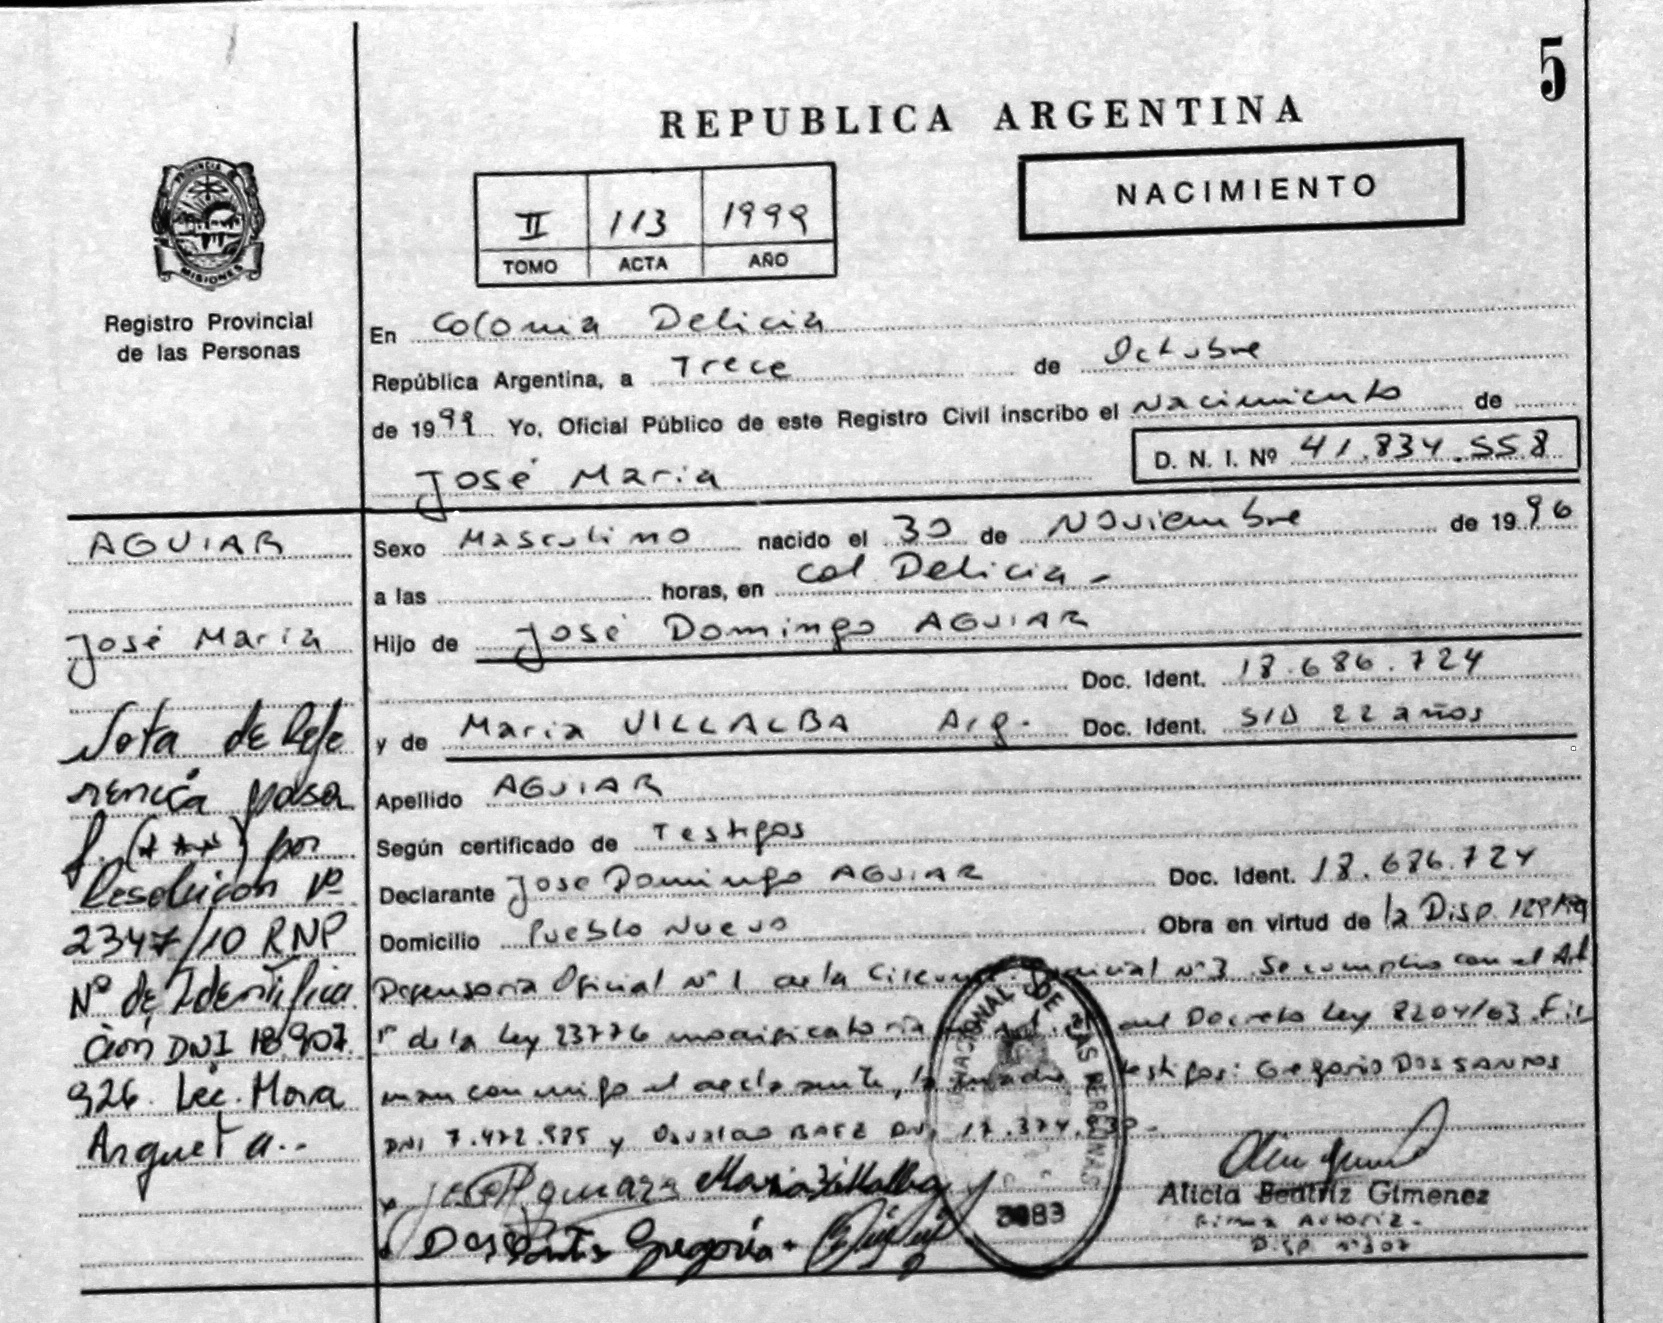 5
REPUBLICA ARGENTINA
NACIMIENTO
II 113 1999
TOMO ACTA AÑO
PROVINCIA DE
MISIONES
Registro Provincial
de las Personas
En Colonia Delicia
República Argentina, a Trece de Octubre
de 1999 Yo, Oficial Público de este Registro Civil inscribo el Nacimiento de
D. N. I. Nº 41.834.558
José Maria
AGUIAR
José Maria
Sexo Masculino nacido el 30 de Noviembre de 1996
a las horas, en Col Delicia -
Hijo de José Domingo AGUIAR
Doc. Ident. 18.686.724
y de Maria VILLALBA Arg. Doc. Ident. S/D 22 años
Apellido AGUIAR
Según certificado de Testigos
Declarante Jose Domingo AGUIAR Doc. Ident. 18.686.724
Domicilio Pueblo Nuevo Obra en virtud de la Disp.
Defensoria Oficial Nº 1 de la Judicial Nº 3. Se cumplio con el Art
1º de la Ley 23776 modificatoria del Decreto Ley 8204/63. Fir
man conmigo el declarante, la madre testigos: Gregorio DOS SANTOS
DNI y Osvaldo BAEZ DNI
Nota de Refe
rencia pasa
f. (***) por
Resolución Nº
2347/10 RNP
Nº de Identifica
ción DNI 18.907.
926. Lec. Mora
Argueta..
Maria Villalba
Dos Santos Gregorio
NACIONAL DE LAS PERSONAS
3083
Alicia Beatriz Gimenez
Firma Autoriz.
Disp. Nº 307